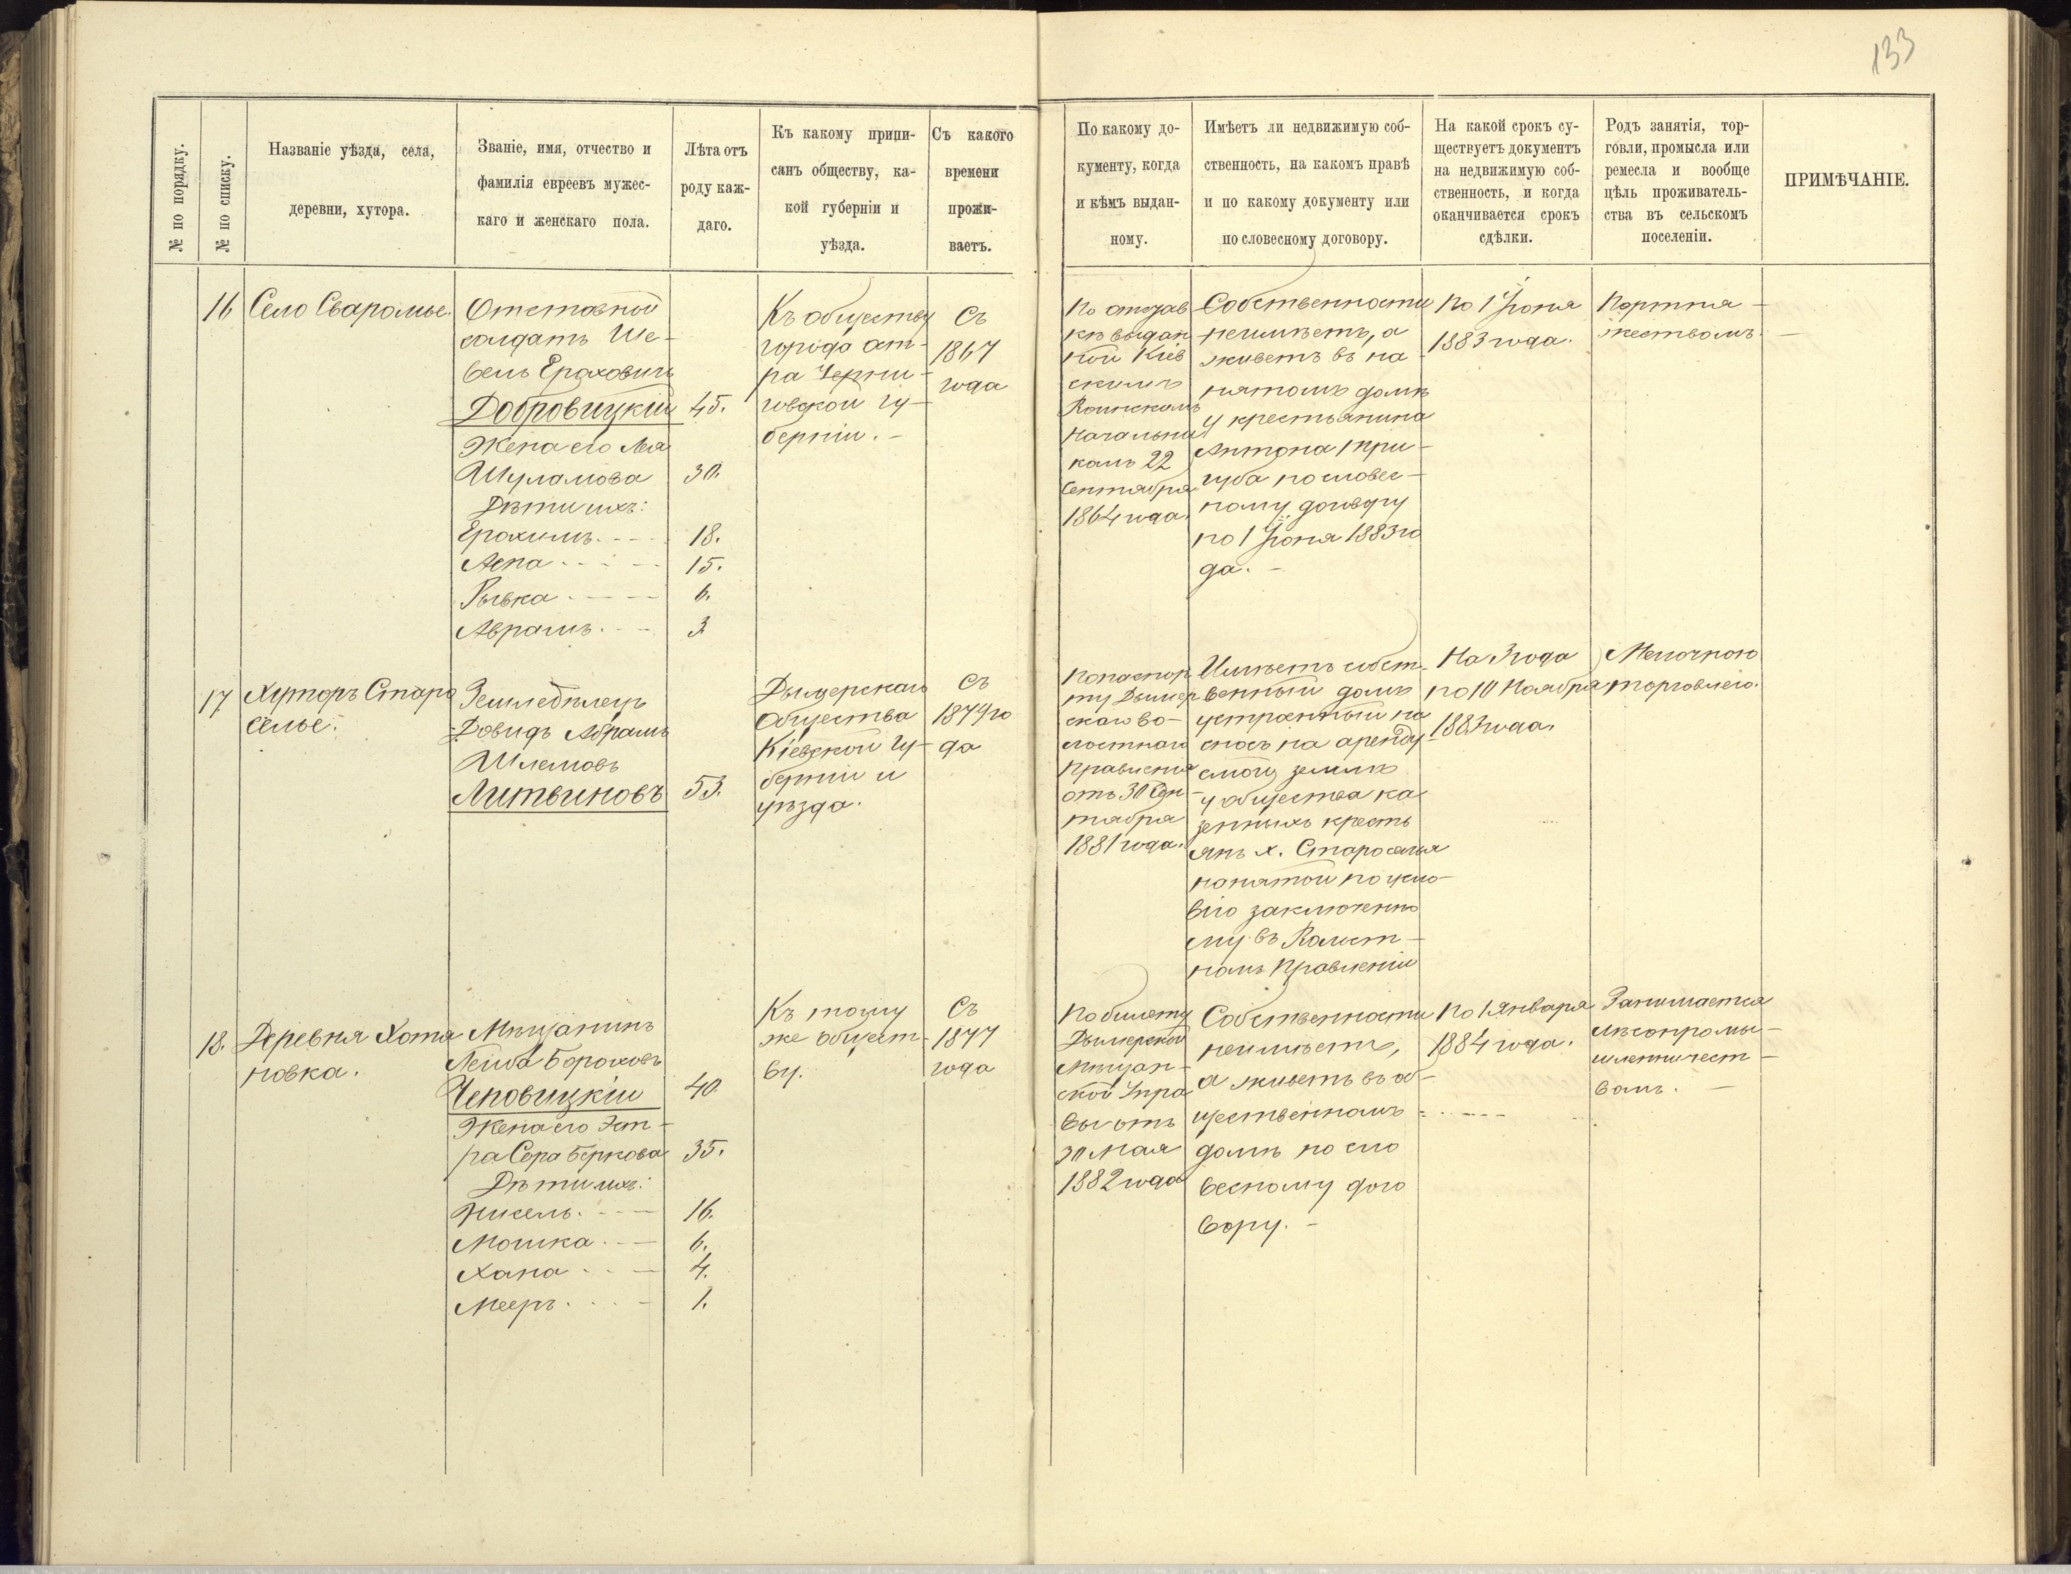 133
№ по порядку.
№ по списку.
Названіе уѣзда, села,
деревни, хутора.
Званіе, имя, отчество и
фамилія евреевъ мужес-
каго и женскаго пола.
Лѣта отъ
роду каж-
даго.
Къ какому припи-
санъ обществу, ка-
кой губерніи и
уѣзда.
Съ какого
времени
прожи-
ваетъ.
По какому до-
кументу, когда
и кѣмъ выдан-
ному.
Имѣетъ ли недвижимую соб-
ственность, на какомъ правѣ
и по какому документу или
по словесному договору.
На какой срокъ су-
ществуетъ документъ
на недвижимую соб-
ственность, и когда
оканчивается срокъ
сдѣлки.
Родъ занятія, тор-
говли, промысла или
ремесла и вообще
цѣль проживатель-
ства въ сельскомъ
поселеніи.
ПРИМѢЧАНІЕ.
16
Село Сваромье.
Отставной
солдатъ Ше-
вель Ераховичъ
Добровицкій 45.
Жена его Лея
Шуламова 30.
Дѣти ихъ:
Ерахимъ 18.
Асна 15.
Рывка 6.
Аврамъ 3
Къ обществу
города
Черни-
говской гу-
берніи.
Съ
1867
года
По отстав
кѣ выдан
ной Кіев
скимъ
Воинскимъ
Начальни
комъ 22
Сентября
1864 года.
Собственности
неимѣетъ, а
живетъ въ на
нятомъ домѣ
у крестьянина
Антона При-
губа по словес-
ному договору
по 1 Іюня 1883 го
да.
По 1 Іюня
1883 года.
Портня-
жествомъ.
17
Хуторъ Старо
селье.
Земледѣлецъ
Довидъ Абрамъ
Шлемовъ
Литвиновъ 53.
Дымерскаго
Общества
Кіевской гу-
берніи и
уѣзда.
Съ
1879 го
да
По паспор
ту Дымер
скаго Во-
лостнаго
Правленія
отъ 30 Сен-
тября
1881 года.
Имѣетъ собст-
венный домъ
устроенный на
сносъ на аренду
емой землѣ
у общества ка
зенныхъ кресть
янъ х. Староселья
нанятой по усло-
вію заключенно
му въ Волост-
номъ Правленіи
На 3 года
по 10 Ноября
1883 года.
Мелочною
торговлею.
18.
Деревня Хотя
новка.
Мѣщанинъ
Лейба Бороховъ
Чеповицкій 40.
Жена его Эст-
ра Сора Беркова 35.
Дѣти ихъ:
Нисель 16.
Мошка 6.
Хана 4.
Мееръ 1.
Къ тому
же общест-
ву.
Съ
1877
года
По билету
Дымерской
Мѣщан-
ской Упра
вы отъ
30 Мая
1882 года
Собственности
неимѣетъ,
а живетъ въ об-
щественномъ
домѣ по сло
весному дого
вору.
По 1 Января
1884 года.
Занимается
лѣсопромы-
шленничест-
вомъ.